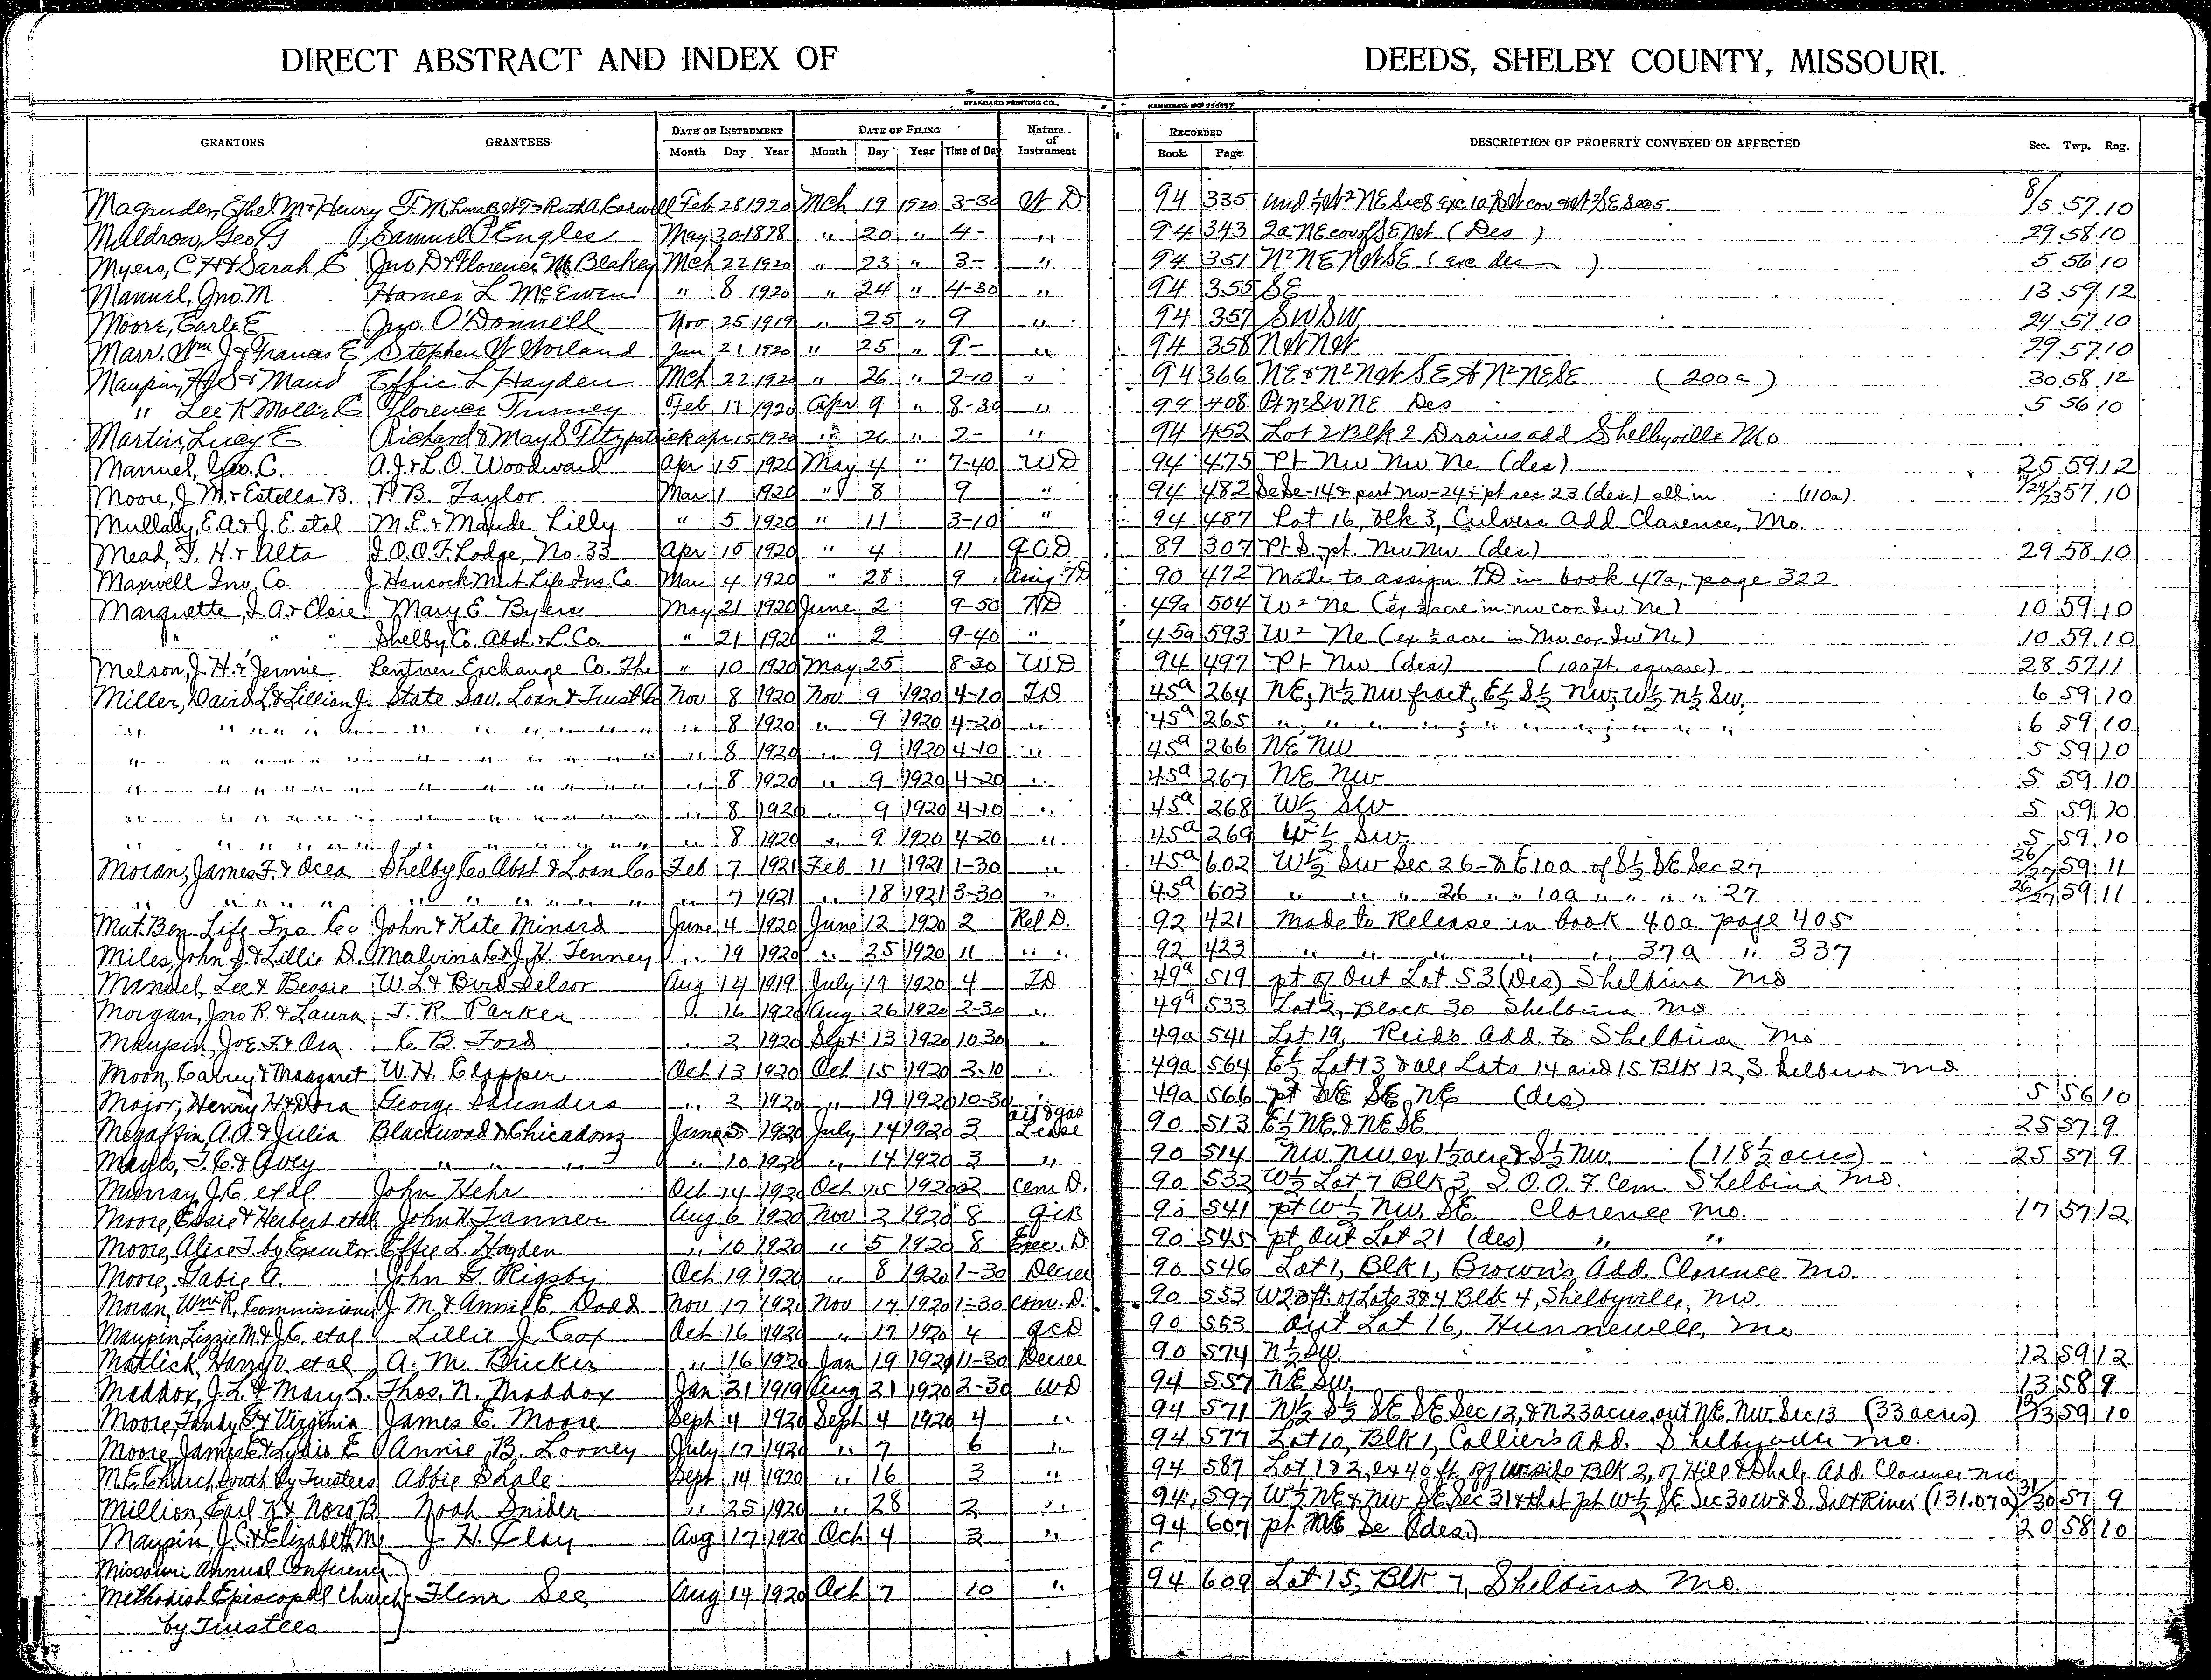 DIRECT ABSTRACT AND INDEX OF DEEDS, SHELBY COUNTY, MISSOURI.
STANDARD PRINTING CO., HANNIBAL, MO.
GRANTORS GRANTEES DATE OF INSTRUMENT DATE OF FILING Nature of Instrument RECORDED DESCRIPTION OF PROPERTY CONVEYED OR AFFECTED Sec. Twp. Rng.
Month Day Year Month Day Year Time of Day Book Page
Magruder, Ethel M & Henry Feb 28 1920 Mch 19 1920 3-30 W D 94 335 8/5 57 10
Muldrow, Geo G Samuel P Engles May 30 1878 " 20 " 4- " 94 343 2a NE cor of SE NW (Des ) 29 58 10
Myers, C H & Sarah E Jno D & Florence M Blakey Mch 22 1920 " 23 " 3- " 94 351 N2 NE NW SE (exc des ) 5 56 10
Manuel, Jno. M. Homer L McEwen " 8 1920 " 24 " 4-30 " 94 355 SE 13 59 12
Moore, Earle E Jno. O'Donnell Nov 25 1919 " 25 " 9 " 94 357 SW SW 24 57 10
Marr, Wm J & Frances E Stephen W Worland Jan 21 1920 " 25 " 9- " 94 358 NW NW 29 57 10
Maupin, H S & Maud Effie L Hayden Mch 22 1920 " 26 " 2-10 " 94 366 NE & N2 NW SE & N2 NE SE (200a) 30 58 12
" Lee K Mollie E Florence Turney Feb 11 1920 Apr 9 " 8-30 " 94 408 Pt N2 SW NE Des 5 56 10
Martin, Lucy E Richard & May S Fitzpatrick Apr 15 1920 " 26 " 2- " 94 452 Lot 2 Blk 2 Drains add Shelbyville Mo
Manuel, Geo. C. A.J. & L.O. Woodward Apr 15 1920 May 4 " 7-40 WD 94 475 Pt Nw Nw Ne (des) 25 59 12
Moore, J. M. & Estella B. P. B. Taylor Mar 1 1920 " 8 9 " 94 482 Se Se-14 & part Nw-24 & pt sec 23 (des.) all in (110a) 14/24/23 57 10
Mullaly, E.A. & J.E. etal M.E. & Maude Lilly " 5 1920 " 11 3-10 " 94 487 Lot 16, blk 3, Culvers Add Clarence, Mo.
Mead, T. H. & Alta I.O.O.F. Lodge, No. 33 Apr 15 1920 " 4 11 QCD 89 307 Pt S. pt. Nw Nw (des) 29 58 10
Maxwell Inv. Co. J. Hancock Mut. Life Ins. Co. Mar 4 1920 " 28 9 Assig. TD 90 472 Made to assign TD in book 47a, page 322
Marquette, I. A. & Elsie Mary E. Byers May 21 1920 June 2 9-50 TD 49a 504 W2 Ne (ex ½ acre in nw cor Sw Ne) 10 59 10
" " " Shelby Co. Abst. & L. Co. " 21 1920 " 2 9-40 " 45a 593 W2 Ne (ex ½ acre in Nw cor Sw Ne) 10 59 10
Melson, J. H. & Jennie Lentner Exchange Co. The " 10 1920 May 25 8-30 WD 94 497 Pt Nw (des) (100 ft. square) 28 57 11
Miller, David L. & Lillian J. State Sav. Loan & Trust Co Nov 8 1920 Nov 9 1920 4-10 TD 45a 264 NE, N½ NW fract, E½ S½ NW, W½ N½ SW, 6 59 10
" " " " " " " " " " " 8 1920 " 9 1920 4-20 " 45a 265 " " " " " " " " " 6 59 10
" " " " " " " " " " " 8 1920 " 9 1920 4-10 " 45a 266 NE NW 5 59 10
" " " " " " " " " " " 8 1920 " 9 1920 4-20 " 45a 267 NE NW 5 59 10
" " " " " " " " " " " 8 1920 " 9 1920 4-10 " 45a 268 W½ SW 5 59 10
" " " " " " " " " " " 8 1920 " 9 1920 4-20 " 45a 269 W½ SW 5 59 10
Moran, James F. & Ocea Shelby Co Abst & Loan Co Feb 7 1921 Feb 11 1921 1-30 " 45a 602 W½ SW Sec 26 & E 10a of S½ SE Sec 27 26/27 59 11
" " " " " " " " " 7 1921 " 18 1921 3-30 " 45a 603 " " " 26 " " 10a " " " " 27 26/27 59 11
Mut. Ben. Life Ins. Co John & Kate Minard June 4 1920 June 12 1920 2 Rel D. 92 421 Made to Release in book 40a page 405
Miles, John S. & Lillie D. Malvina C & J. H. Tenney " 19 1920 " 25 1920 11 " " 92 423 " " " " 37a " 337
Manuel, Lee & Bessie W. L. & Bird Selsor Aug 14 1919 July 17 1920 4 TD 49a 519 pt of Out Lot 53 (Des) Shelbina Mo
Morgan, Jno R. & Laura T. R. Parker " 16 1920 Aug 26 1920 2-30 " 49a 533 Lot 2, Block 30 Shelbina Mo
Maupin, Joe F. & Ora C. B. Ford " 2 1920 Sept 13 1920 10-30 " 49a 541 Lot 19, Reid's Add to Shelbina Mo
Moon, Carrey & Margaret W. H. Clapper Oct 13 1920 Oct 15 1920 3-10 " 49a 564 E½ Lot 13 & all Lots 14 and 15 Blk 12, Shelbina Mo
Major, Henry H & Dora George Saunders " 2 1920 " 19 1920 10-30 " 49a 566 pt SE SE NE (des) 5 56 10
Megaffin, A.A. & Julia Blackwood & Chicadonz June 5 1920 July 14 1920 3 oil & gas Lease 90 513 E½ NE & NE SE 25 57 9
Mayes, T. C. & Avey " " " " 10 1920 " 14 1920 3 " 90 514 NW NW ex 1½ acre & S½ NW. (118½ acres) 25 57 9
Murray, J. C. etal John Hehr Oct 14 1920 Oct 15 1920 2 Cem D. 90 532 W½ Lot 7 Blk 3, I.O.O.F. Cem. Shelbina Mo.
Moore, Essie & Herbert etal John H. Tanner Aug 6 1920 Nov 2 1920 8 90 541 pt W½ NW. SE. Clarence Mo. 17 57 12
Moore, Alice T. by Executor Effie L. Hayden " 10 1920 " 5 1920 8 Exec. D 90 545 pt Out Lot 21 (des) " "
Moore, Gabie A. John G. Rigsby Oct 19 1920 " 8 1920 1-30 Decree 90 546 Lot 1, Blk 1, Brown's Add. Clarence Mo.
Moran, Wm R. Commissioner J. M. & Annie E. Dodd Nov 17 1920 Nov 17 1920 1-30 Com. D. 90 553 W 20 ft. of Lots 3 & 4 Blk 4, Shelbyville, Mo.
Maupin, Lizzie M. & J. C. etal Lillie J. Cox Oct 16 1920 " 17 1920 4 QCD 90 553 Out Lot 16, Hunnewell, Mo
Matlick, Harry V. etal A. M. Bricker " 16 1920 Jan 19 11-30 Decree 90 574 N½ SW. 12 59 12
Maddox, J. L. & Mary L. Thos. N. Maddox Jan 31 1919 Aug 21 1920 2-30 WD 94 557 NE SW. 13 58 9
Moore, Tandy G & Virginia James E. Moore Sept 4 1920 Sept 4 1920 4 " 94 571 W½ S½ SE SE Sec 12, & N 23 acres out NE. NW. Sec 13 (33 acres) 12/13 59 10
Moore, James E. & Lydia E Annie B. Looney July 17 1920 " 7 6 " 94 577 Lot 10, Blk 1, Collier's Add. Shelbyville Mo.
M.E. Church South by Trustees Abbie Shale Sept 14 1920 " 16 3 " 94 587 Lot 1 & 2, ex 40 ft off W side Blk 2, of Hill & Shale Add. Clarence Mo
Million, Earl R & Nora B Noah Snider " 25 1920 " 28 2 " 94 597 W½ NE & NW SE Sec 31 & that pt W½ SE Sec 30 W & S. Salt River (131.07a) 31/30 57 9
Maupin, J.C. & Elizabeth M. J. H. Clay Aug 17 1920 Oct 4 3 " 94 607 pt NE Se (des.) 20 58 10
Missouri Annual Conference
Methodist Episcopal Church Flenr See Aug 14 1920 Oct 7 10 " 94 609 Lot 15, Blk 7, Shelbina Mo.
by Trustees